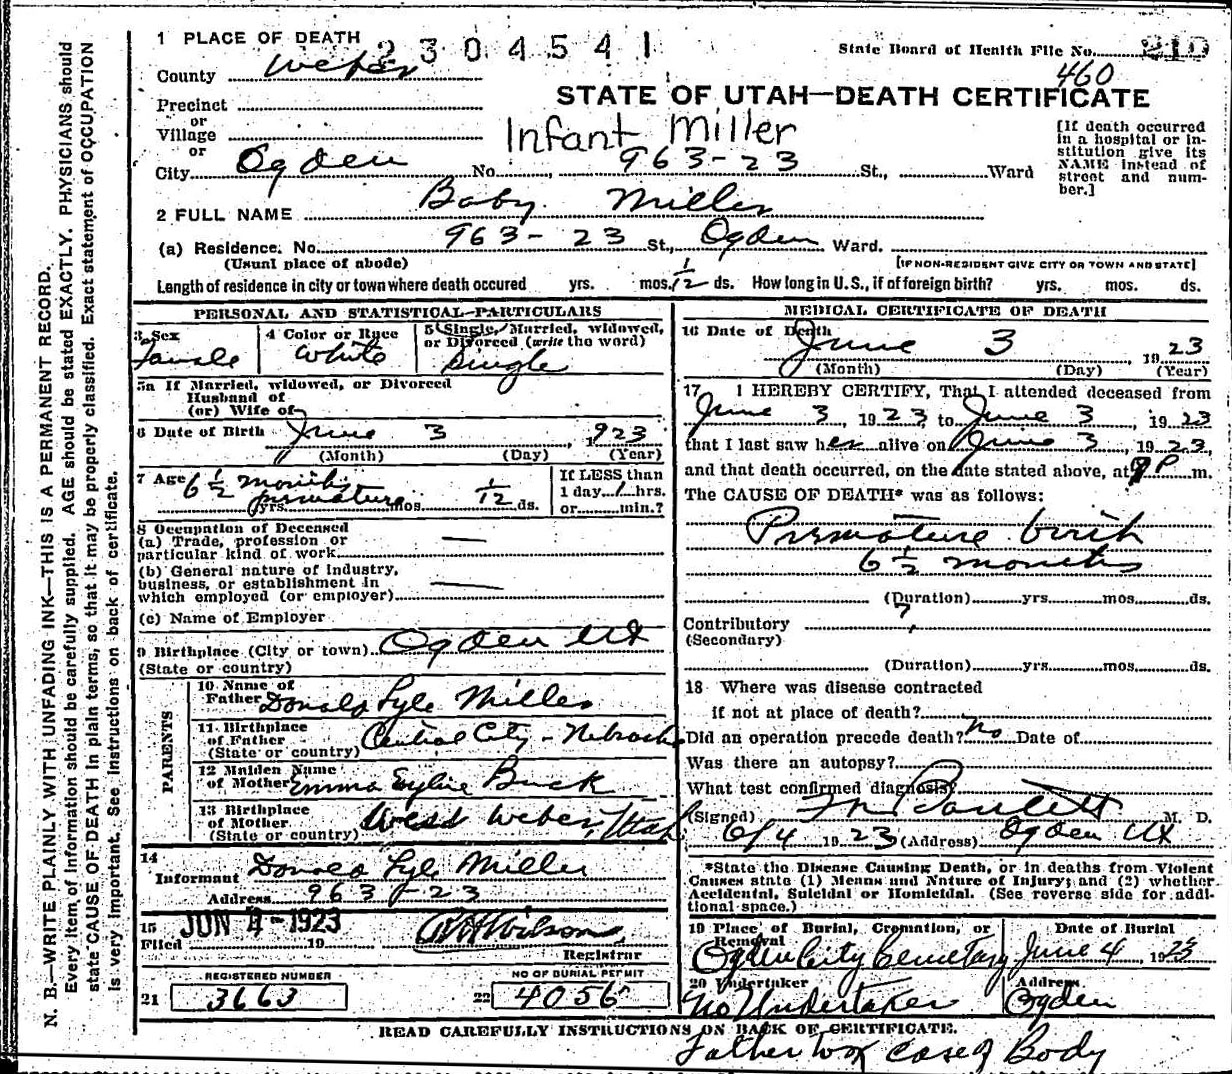 1 PLACE OF DEATH
2304541
State Board of Health File No. 210
460
County Weber
STATE OF UTAH—DEATH CERTIFICATE
Precinct
or
Village
or
Infant Miller
[If death occurred in a hospital or institution give its NAME instead of street and number.]
City Ogden No. 963-23 St., Ward
2 FULL NAME Baby Miller
(a) Residence. No. 963-23 St., Ogden Ward.
(Usual place of abode) [IF NON-RESIDENT GIVE CITY OR TOWN AND STATE]
Length of residence in city or town where death occured yrs. mos. 1/12 ds. How long in U.S., if of foreign birth? yrs. mos. ds.
PERSONAL AND STATISTICAL PARTICULARS
3 Sex
Female
4 Color or Race
White
5 Single, Married, widowed, or Divorced (write the word)
Single
5a If Married, widowed, or Divorced
Husband of
(or) Wife of
6 Date of Birth June 3, 1923
(Month) (Day) (Year)
7 Age 6 1/2 months
premature yrs. mos. 1/12 ds.
If LESS than
1 day 1 hrs.
or min.?
8 Occupation of Deceased
(a) Trade, profession or
particular kind of work —
(b) General nature of industry,
business, or establishment in
which employed (or employer) —
(c) Name of Employer
9 Birthplace (City or town) Ogden Ut
(State or country)
PARENTS
10 Name of
Father Donald Lyle Miller
11 Birthplace
of Father Central City - Nebraska
(State or country)
12 Maiden Name
of Mother Emma Buck
13 Birthplace
of Mother West Weber, Utah
(State or country)
14
Informant Donald Lyle Miller
Address 963-23
15 JUN 4-1923
Filed 19
Wilson
Registrar
REGISTERED NUMBER
21 3663
NO OF BURIAL PERMIT
22 4056
MEDICAL CERTIFICATE OF DEATH
16 Date of Death
June 3, 1923
(Month) (Day) (Year)
17 I HEREBY CERTIFY, That I attended deceased from
June 3, 1923, to June 3, 1923
that I last saw her alive on June 3, 1923,
and that death occurred, on the date stated above, at 9 P m.
The CAUSE OF DEATH* was as follows:
Premature birth
6 1/2 months
(Duration) yrs. mos. ds.
Contributory ?
(Secondary)
(Duration) yrs. mos. ds.
18 Where was disease contracted
if not at place of death?
Did an operation precede death? No Date of
Was there an autopsy?
What test confirmed diagnosis?
(Signed) M. D.
6/4 1923 (Address) Ogden Ut
*State the Disease Causing Death, or in deaths from Violent
Causes state (1) Means and Nature of Injury; and (2) whether
Accidental, Suicidal or Homicidal. (See reverse side for additional space.)
19 Place of Burial, Cremation, or Removal
Ogden City Cemetery
Date of Burial
June 4, 1923
20 Undertaker
No Undertaker
Address
Ogden
READ CAREFULLY INSTRUCTIONS ON BACK OF CERTIFICATE.
Father took case of Body
N. B.—WRITE PLAINLY WITH UNFADING INK—THIS IS A PERMANENT RECORD.
Every item of information should be carefully supplied. AGE should be stated EXACTLY. PHYSICIANS should
state CAUSE OF DEATH in plain terms, so that it may be properly classified. Exact statement of OCCUPATION
is very important. See instructions on back of certificate.